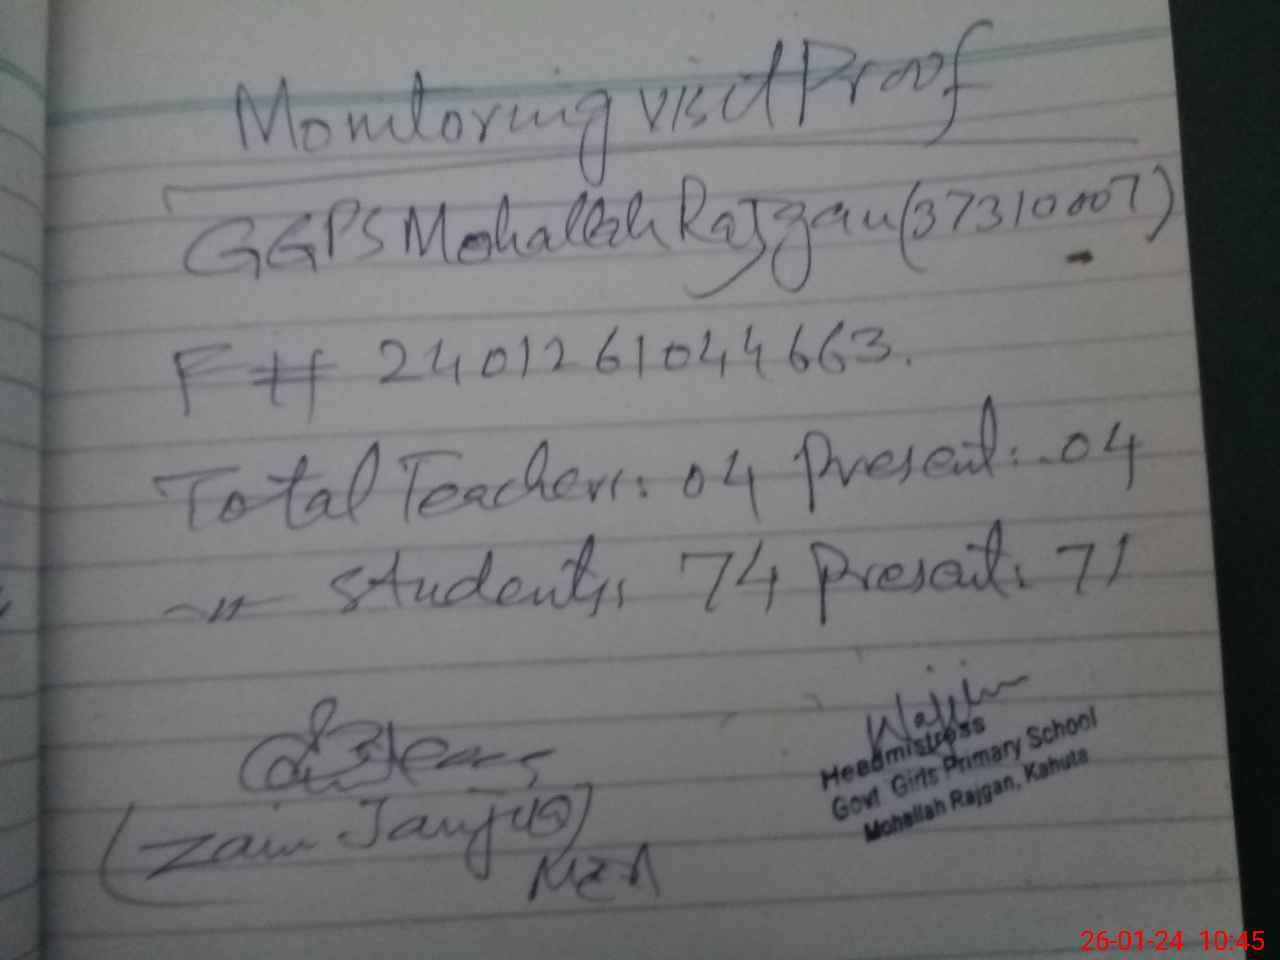 Monitoring visit Proof
GGPS Mohallah Rajgan (37310007)
F # 2401261044663.
Total Teachers: 04 Present: 04
-"- Students: 74 Present: 71
(Zain Janjua)
MEA
Headmistress
Govt Girls Primary School
Mohallah Rajgan, Kahuta
26-01-24 10:45